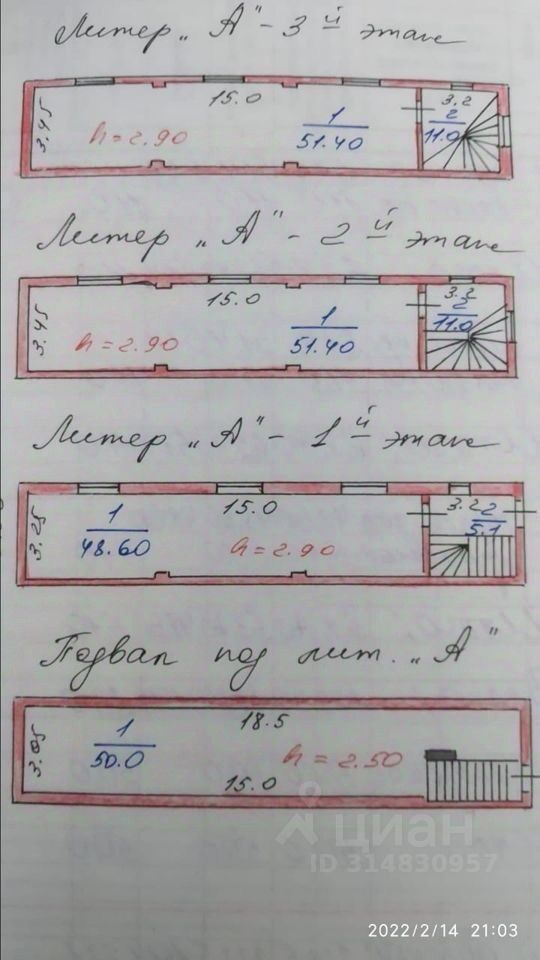 Литер „А" - 3й этаж
3.45
15.0
h = 2.90
1
51.40
3.2
2
11.0
Литер „А" - 2й этаж
3.45
15.0
h = 2.90
1
51.40
3.2
2
11.0
Литер „А" - 1й этаж
3.25
1
48.60
15.0
h = 2.90
3.2
2
5.1
Подвал под лит. „А"
3.05
1
50.0
18.5
15.0
h = 2.50
циан
ID 314830957
2022/2/14 21:03